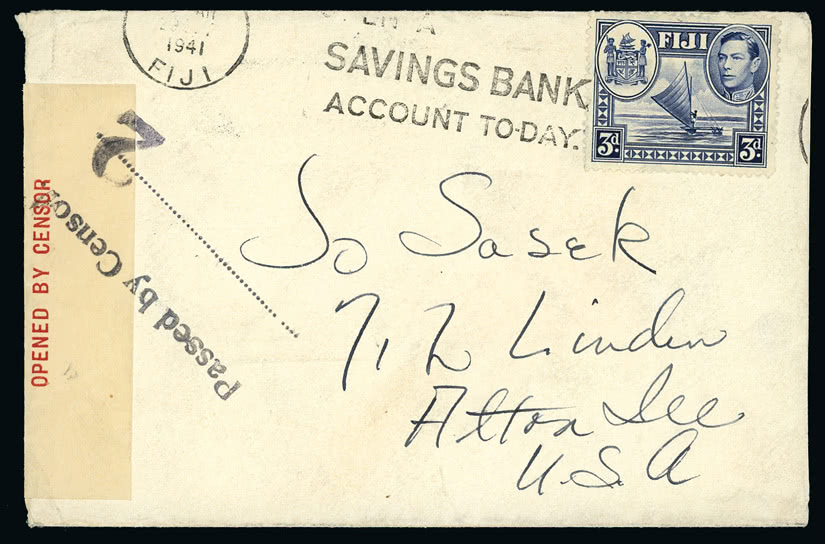 1941
FIJI
EN A
SAVINGS BANK
ACCOUNT TO-DAY.
FIJI
3d
3d
OPENED BY CENSOR
2
Passed by Censor
Jo Sasek
712 Linden
Alton Ill
U.S.A